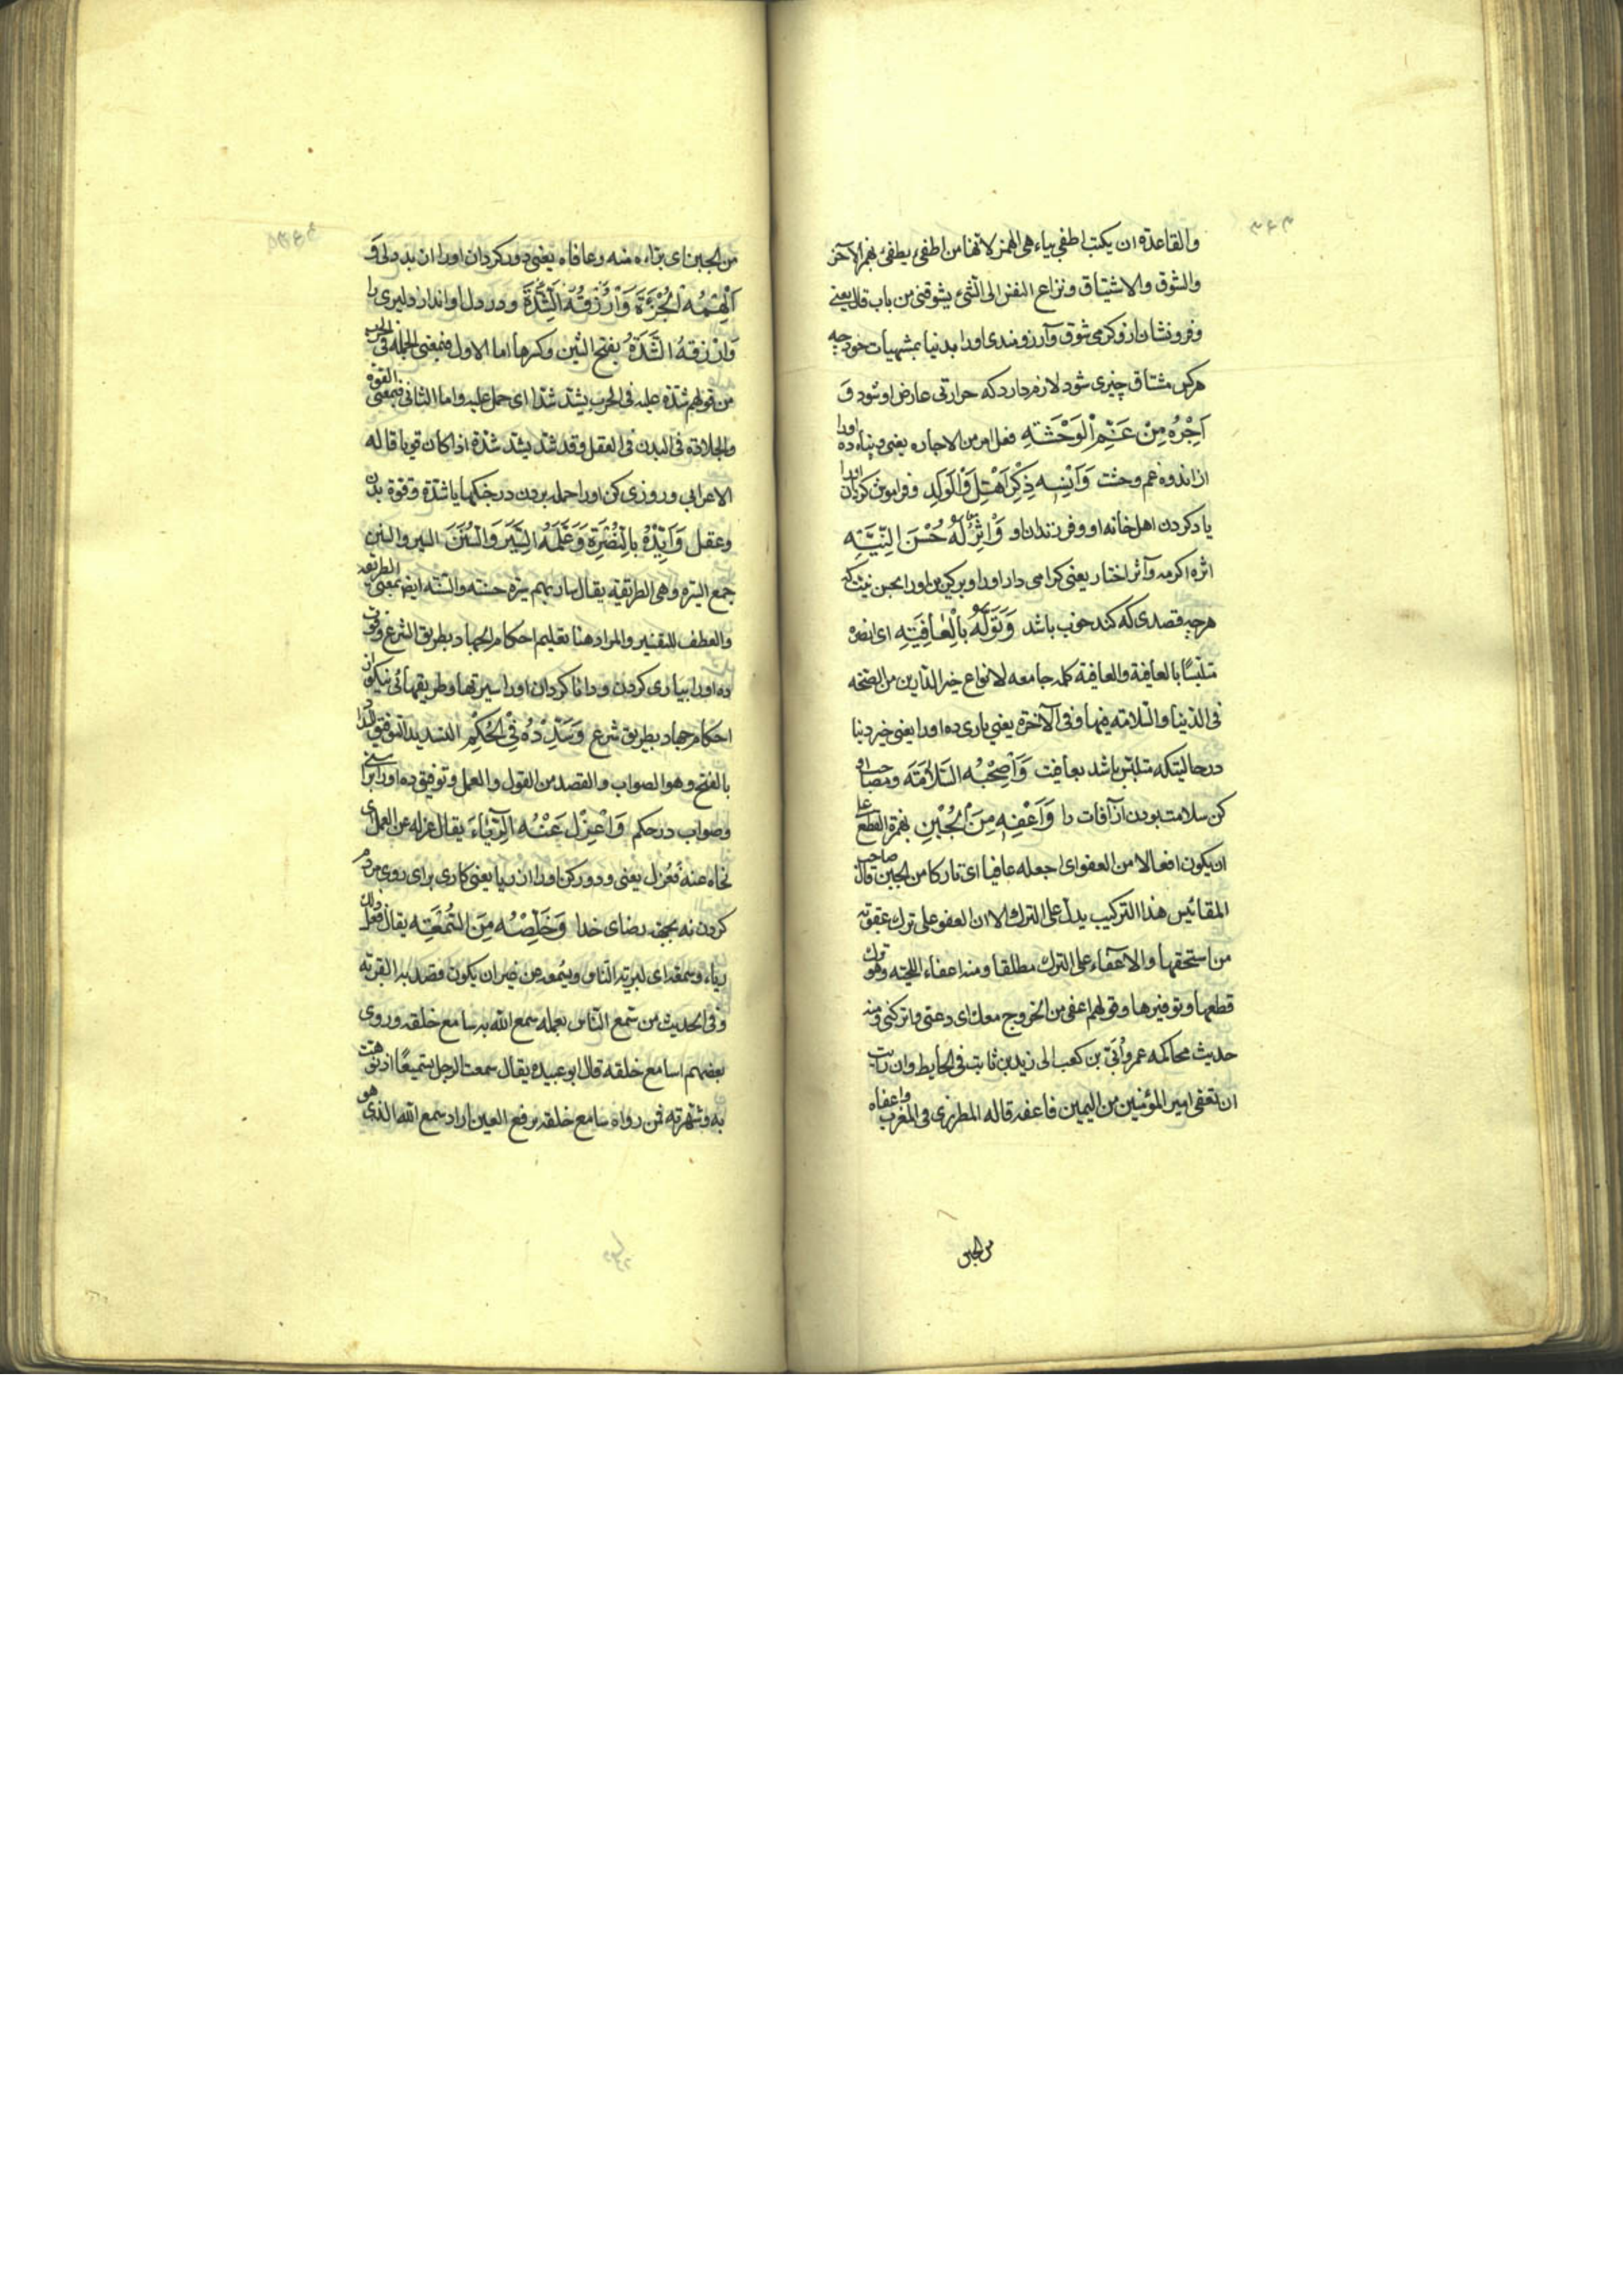 والقاعدة ان یکتب اطفی بیاء هی الهمزة لانها من اطفئ یطفئ بهمز الآخر
والشوق والاشتیاق ونزاع النفس الی الشئ یشوقنی من باب قال یعنی
وفرونشان ازو کرمی شوق و آرزومندی اورا بدنیا بمشتهیات خود چه
هرکس مشتاق چیزی شود لازم دارد که حرارتی عارض او شود وَ
اَجِرْهُ مِنْ غَمِّ الْوَحْشَةِ فعل امر من الاجاره یعنی وپناه ده اورا
از اندوه غم وحشت وَاَنْسِهِ ذِکْرَ اَهْلِ وَالْوَلَدِ وفراموش کردان اورا
یاد کردن اهل خانه او و فرزندان او وَاْثُرْ لَهُ حُسْنَ النِّیَّةِ
اثره اکرمه وآثر اختار یعنی کرامی دار اورا وبرکزین اورا بحسن نیت که
هرچه قصدی که کند خوب باشد وَتَوَلَّهُ بِالْعَافِیَةِ ای انصره
متلبسًا بالعافیة والعافیة کلمه جامعه لانواع خیر الدارین من الصحة
فی الدنیا والسلامة فیها وفی الآخرة یعنی یاری ده اورا یعنی خیر دنیا
درحالیتکه متلبس باشد بعافیت وَاَصْحِبْهُ السَّلاٰمَةَ ومصاحب او
کن سلامت بودن از آفات را وَاَعْفِهِ مِنَ الْجُبْنِ بهمزة القطع علی
ان یکون افعالا من العفو ای اجعله عافیا ای تارکا من الجبن قال صاحب
المقائیس هذا الترکیب یدل علی الترک الا ان العفو علی ترک عقوبة
من استحقها والاعفاء علی الترک مطلقا ومنه اعفاء اللحیة وهو ترک
قطعها وتوفیرها وقولهم اعفنی من الخروج معک ای دعنی واترکنی ومنه
حدیث محاکمه عمر واُبَیّ بن کعب الی زید بن ثابت فی الحایط وان رایت
ان تعفی امیر المؤمنین من الیمین فاعفه قاله المطرزی فی المغرب واعفاه
من الجبن
من الجبن ای براءه منه وعافاه یعنی دور کردان اورا از بددلی وَ
اَلْهِمْهُ الْجُرْئَةَ وَارْزُقْهُ الشِّدَّةَ ودر دل او انداز دلیری را
وَارْزُقْهُ الشَّدَّةَ بفتح الشین وکسرها اما الاول فبمعنی الحمله فی الحرب
من قولهم شد علیه فی الحرب یشد شدا ای حمل علیه واما الثانی فبمعنی القوة
والجلادة فی البدن فی العقل وقد شد یشد شدة اذا کان قویا قاله
الاعرابی و روزی کن اورا حمله بردن در جنکها یا شدة وقوة بدن
وعقل وَاَیِّدْهُ بِالنُّصْرَةِ وَعَلِّمْهُ السِّیَرَ وَالسُّنَنَ السیر والسنن
جمع السیرة وهی الطریقة یقال سار بهم سیرة حسنة والسنة ایضا بمعنی الطریقة
والعطف للتفسیر والمراد هنا تعلیم احکام الجهاد بطریق الشرع وقوت
ده اورا بیاری کردن ودانا کردان اورا سیرتها وطریقهائی نیکو از
احکام جهاد بطریق شرع وَسَدِّدْهُ فِی الْحُکْمِ التسدید التوفیق للسداد
بالفتح وهو الصواب والقصد من القول والعمل وتوفیق ده اورا براستی
وصواب در حکم وَاعْزِلْ عَنْهُ الرِّیٰاءَ یقال عزله عن العمل ای
نحاه عنه فعزل یعنی ودور کن اورا از ریا یعنی کاری برای روی مردم
کردن نه بجهة رضای خدا وَخَلِّصْهُ مِنَ السُّمْعَةِ یقال فعل ذلک
ریاء وسمعة ای لیریه الناس ویسمعه من غیر ان یکون قصد به القربة
وفی الحدیث من سمع الناس بعمله سمع الله به سامع خلقه و روی
بعضهم اسامع خلقه قال ابو عبیده یقال سمعت الرجل تسمیعًا اذا نوهت
به وشهرته فمن رواه سامع خلقه برفع العین اراد سمع الله الذی هو